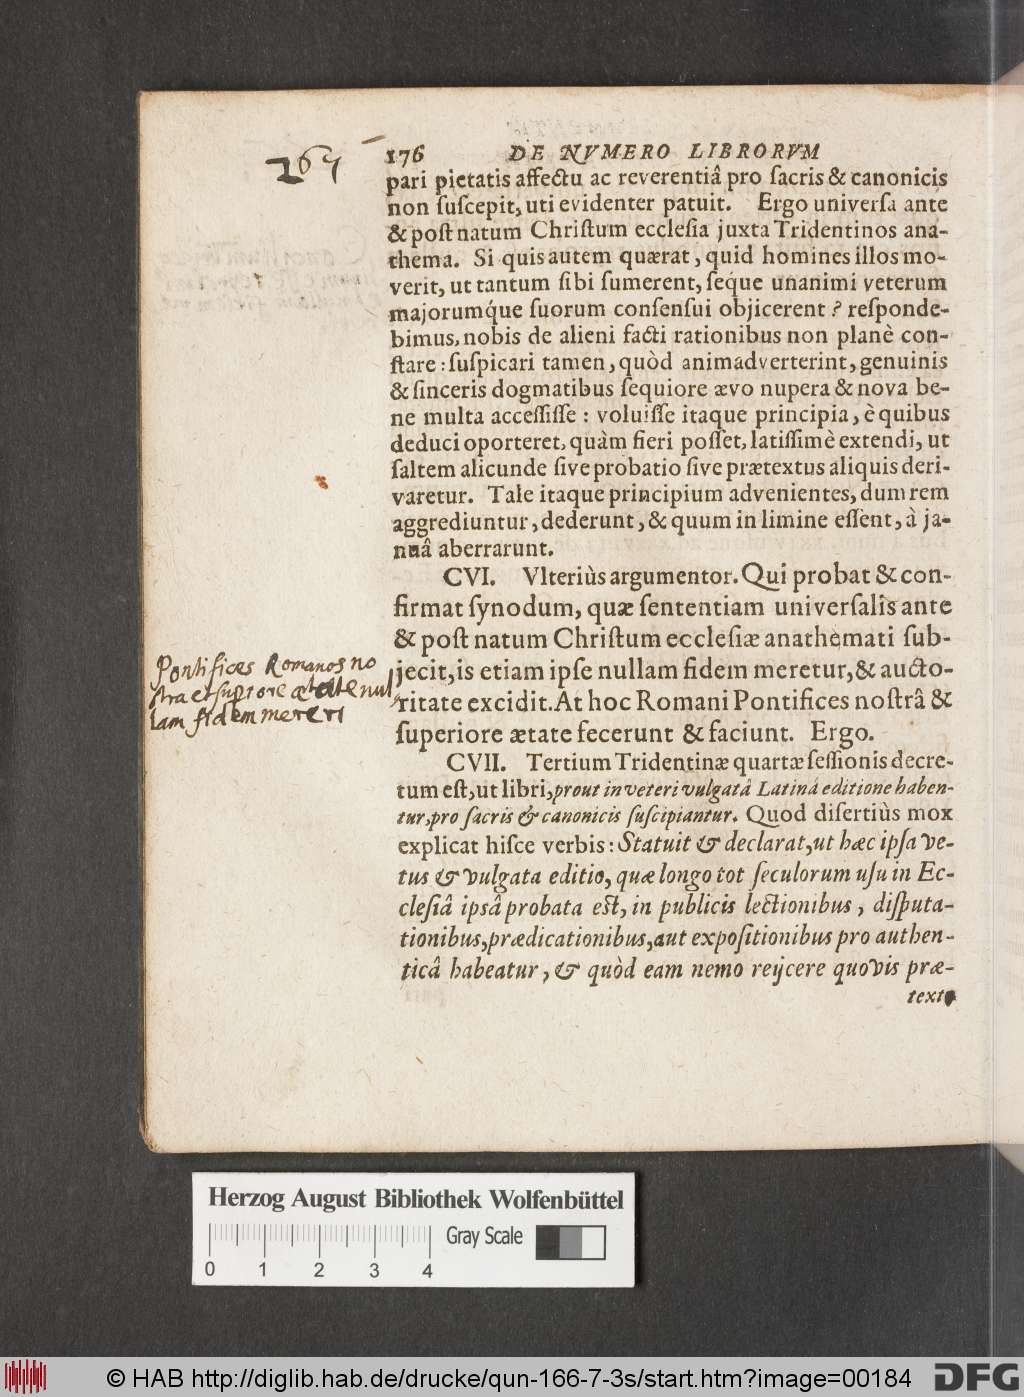 176 DE NVMERO LIBRORVM
pari pietatis affectu ac reverentiâ pro ſacris & canonicis
non ſuſcepit, uti evidenter patuit. Ergo univerſa ante
& poſt natum Chriſtum eccleſia juxta Tridentinos ana-
thema. Si quis autem quærat, quid homines illos mo-
verit, ut tantum ſibi ſumerent, ſeque unanimi veterum
majorumque ſuorum conſenſui objicerent? reſponde-
bimus, nobis de alieni facti rationibus non planè con-
ſtare: ſuſpicari tamen, quòd animadverterint, genuinis
& ſinceris dogmatibus ſequiore ævo nupera & nova be-
ne multa acceſſiſſe: voluiſſe itaque principia, è quibus
deduci oporteret, quàm fieri poſſet, latiſſimè extendi, ut
ſaltem alicunde ſive probatio ſive prætextus aliquis deri-
varetur. Tale itaque principium advenientes, dum rem
aggrediuntur, dederunt, & quum in limine eſſent, à ja-
nuâ aberrarunt.
CVI. Vlteriùs argumentor. Qui probat & con-
firmat ſynodum, quæ ſententiam univerſalis ante
& poſt natum Chriſtum eccleſiæ anathemati ſub-
jecit, is etiam ipſe nullam fidem meretur, & aucto-
ritate excidit. At hoc Romani Pontifices noſtrâ &
ſuperiore ætate fecerunt & faciunt. Ergo.
Pontifices Romanos no
ſtra et ſuperiore ætate nul
lam fidem mereri
CVII. Tertium Tridentinæ quartæ ſeſſionis decre-
tum eſt, ut libri, prout in veteri vulgatâ Latinâ editione haben-
tur, pro ſacris & canonicis ſuſcipiantur. Quod diſertiùs mox
explicat hiſce verbis: Statuit & declarat, ut hæc ipſa ve-
tus & vulgata editio, quæ longo tot ſeculorum uſu in Ec-
cleſiâ ipſâ probata eſt, in publicis lectionibus, diſputa-
tionibus, prædicationibus, aut expoſitionibus pro authen-
ticâ habeatur, & quòd eam nemo reijcere quovis præ-
texto
Herzog August Bibliothek Wolfenbüttel
Gray Scale
0 1 2 3 4
© HAB http://diglib.hab.de/drucke/qun-166-7-3s/start.htm?image=00184 DFG